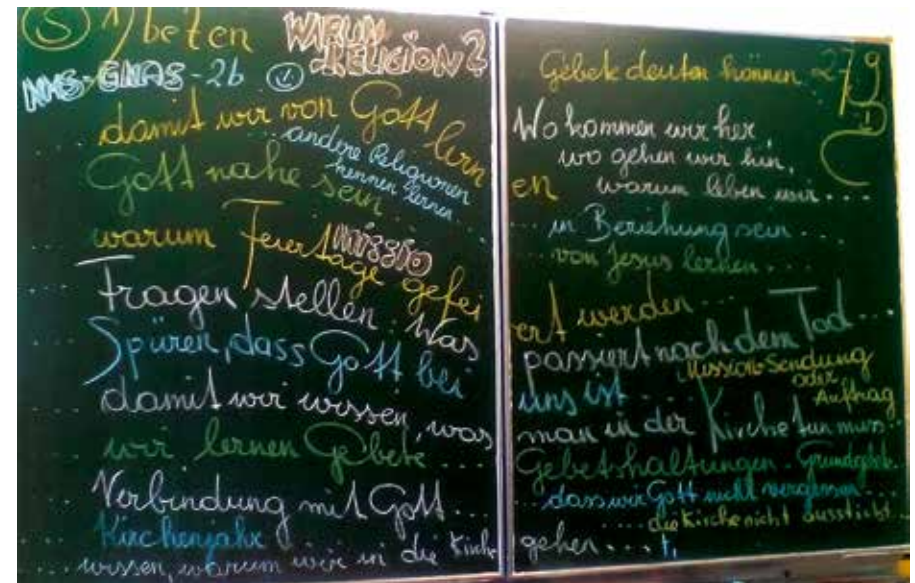 S 1) beten WARUM RELIGION?
NHS-GNAS-2b
damit wir von Gott lern
andere Religionen
kennen lernen
Gott nahe sein
warum Feiertage gefei
MISSIO
Fragen stellen: Was
Spüren, dass Gott bei
damit wir wissen, was
wir lernen Gebete...
Verbindung mit Gott...
Kirchenjahr
wissen, warum wir in die Kirche
Gebete deuten können 27.9
Wo kommen wir her,
wo gehen wir hin,
en warum leben wir...
in Beziehung sein...
von Jesus lernen...
ert werden...
passiert nach dem Tod...
Mission-Sendung
oder
Auftrag
uns ist...
man in der Kirche tun muss..
Gebetshaltungen-Grundgebete..
dass wir Gott nicht vergessen
die Kirche nicht ausstirbt...
gehen...